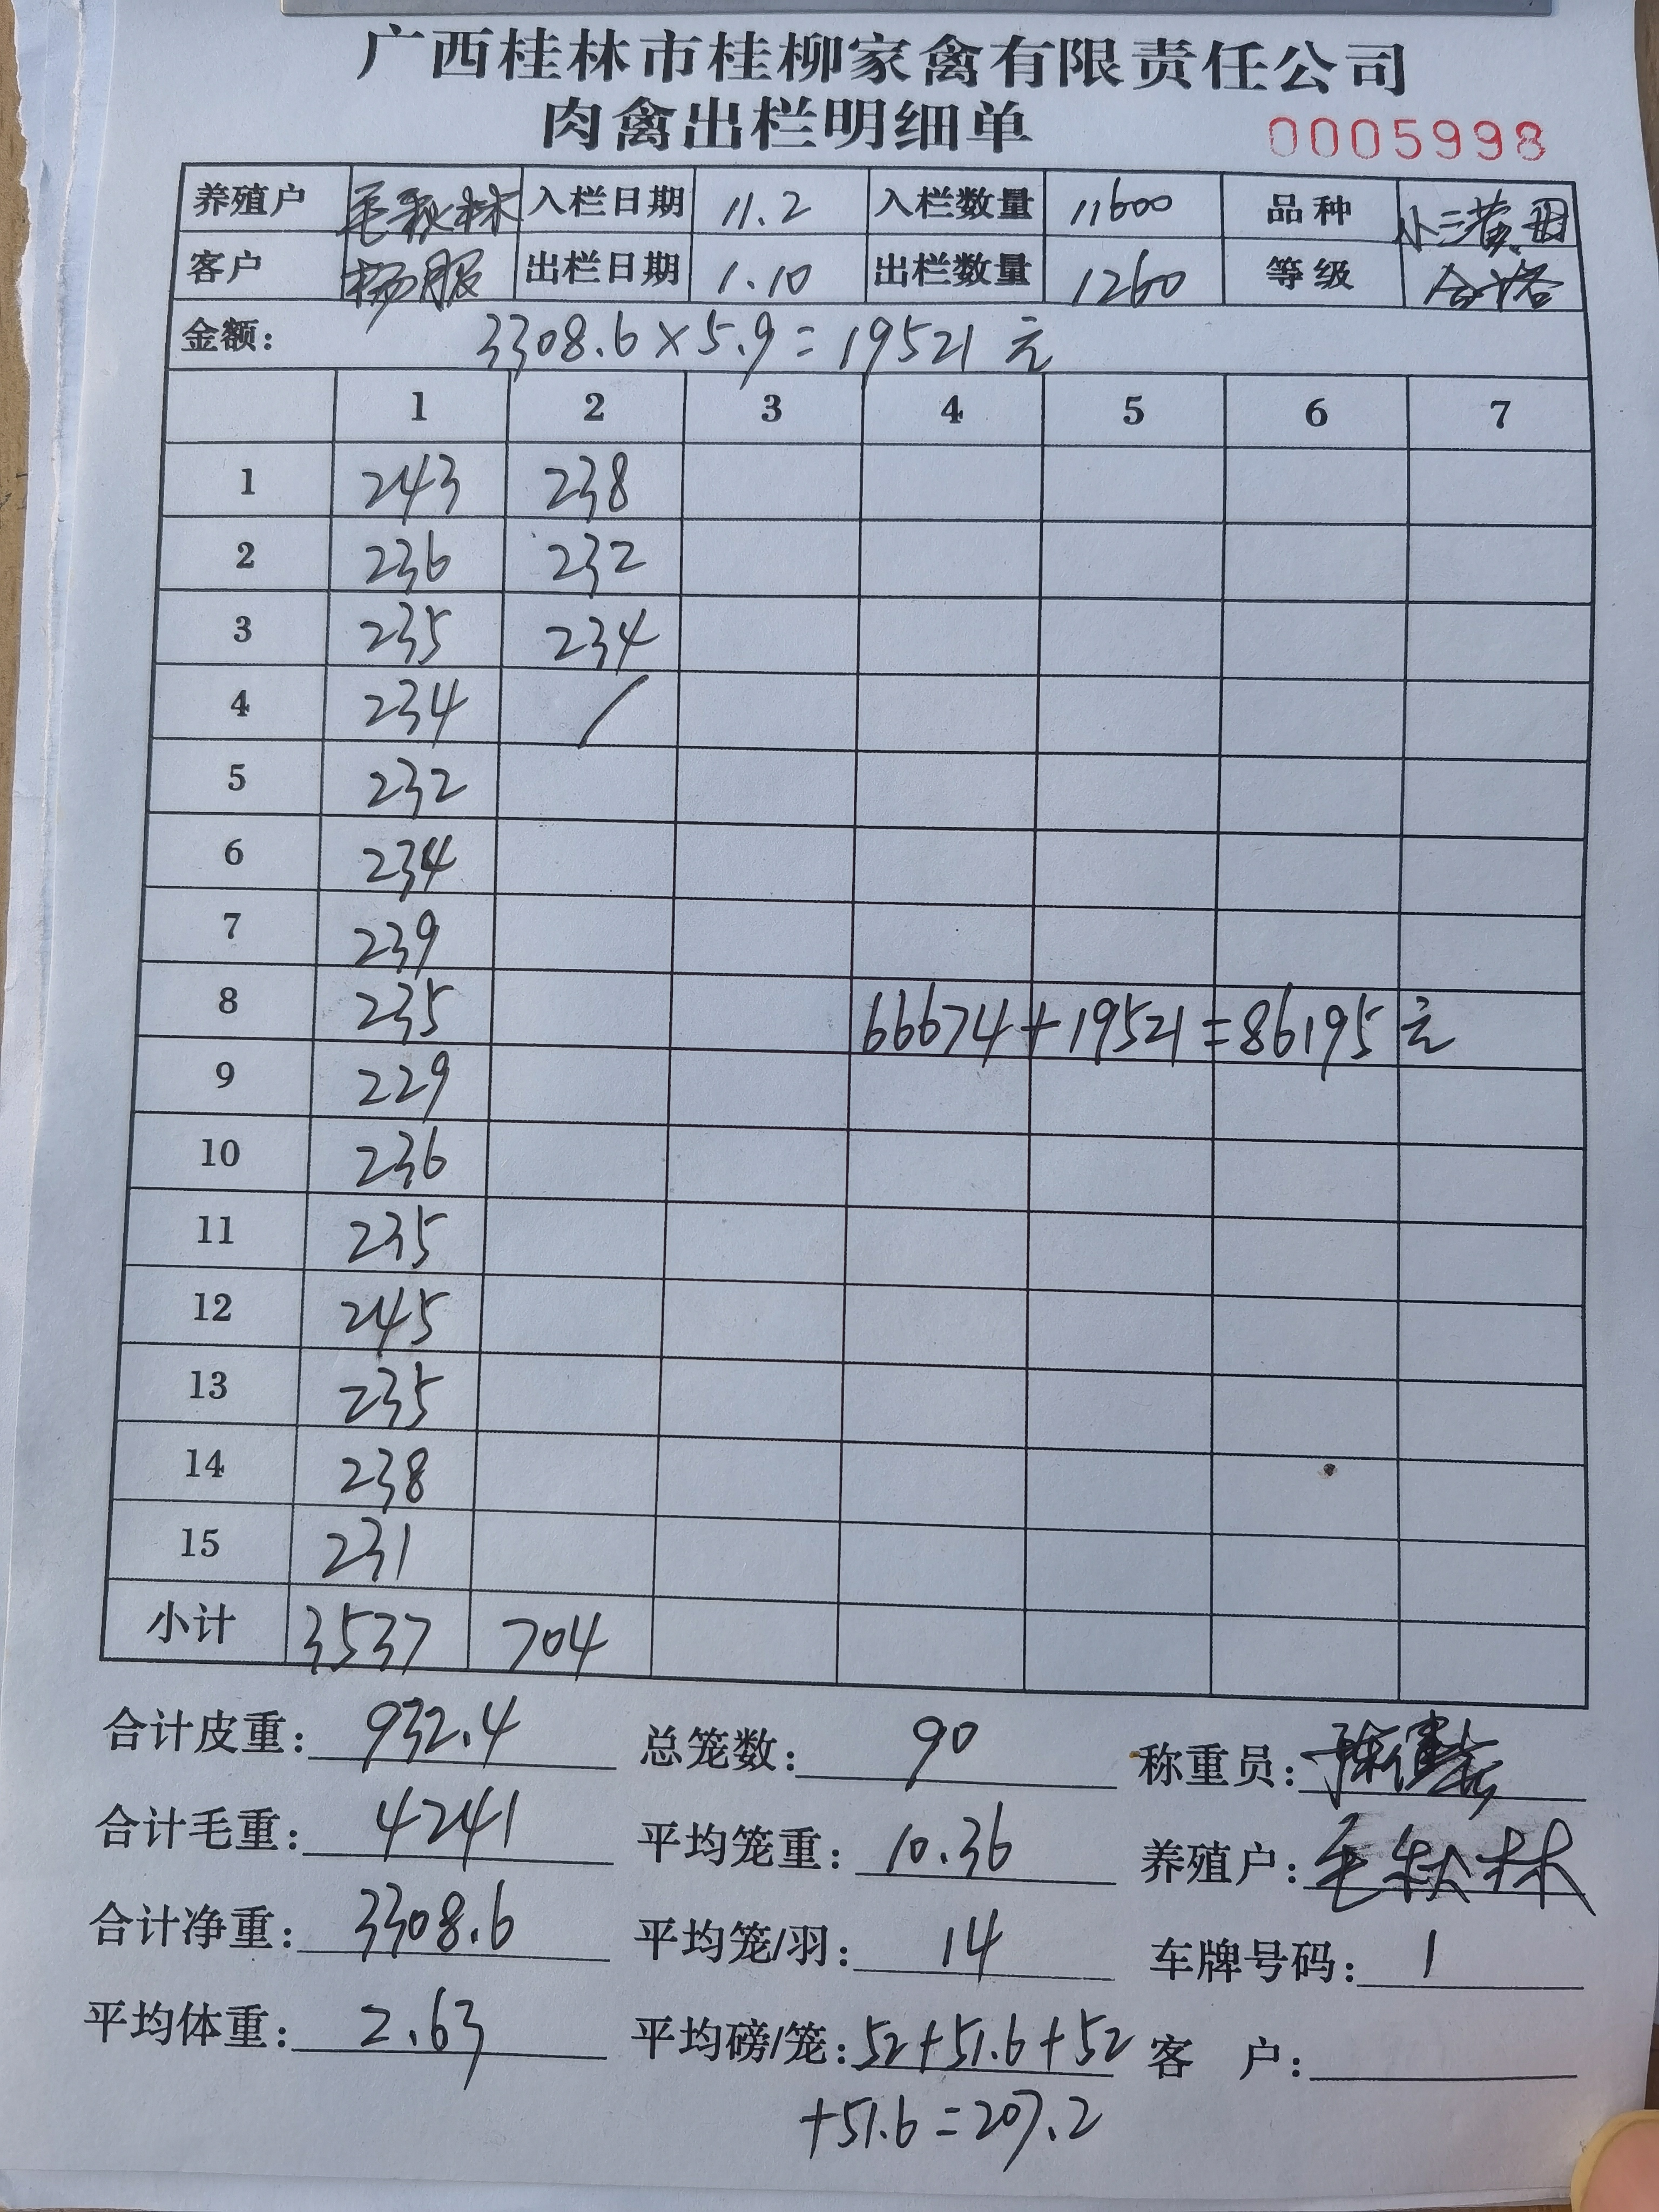 广西桂林市桂柳家禽有限责任公司
肉禽出栏明细单 0005998
养殖户 毛秋林 入栏日期 11.2 入栏数量 11600 品种 小三黄
客户 杨服 出栏日期 1.10 出栏数量 1260 等级 合格
金额: 3308.6×5.9=19521元
1 2 3 4 5 6 7
1 243 238
2 236 232
3 235 234
4 234 /
5 232
6 234
7 239
8 235 66674+19521=86195元
9 229
10 236
11 235
12 245
13 235
14 238
15 231
小计 3537 704
合计皮重: 932.4 总笼数: 90 称重员:
合计毛重: 4241 平均笼重: 10.36 养殖户: 毛秋林
合计净重: 3308.6 平均笼/羽: 14 车牌号码: 1
平均体重: 2.63 平均磅/笼: 52+51.6+52 客 户:
+51.6=207.2